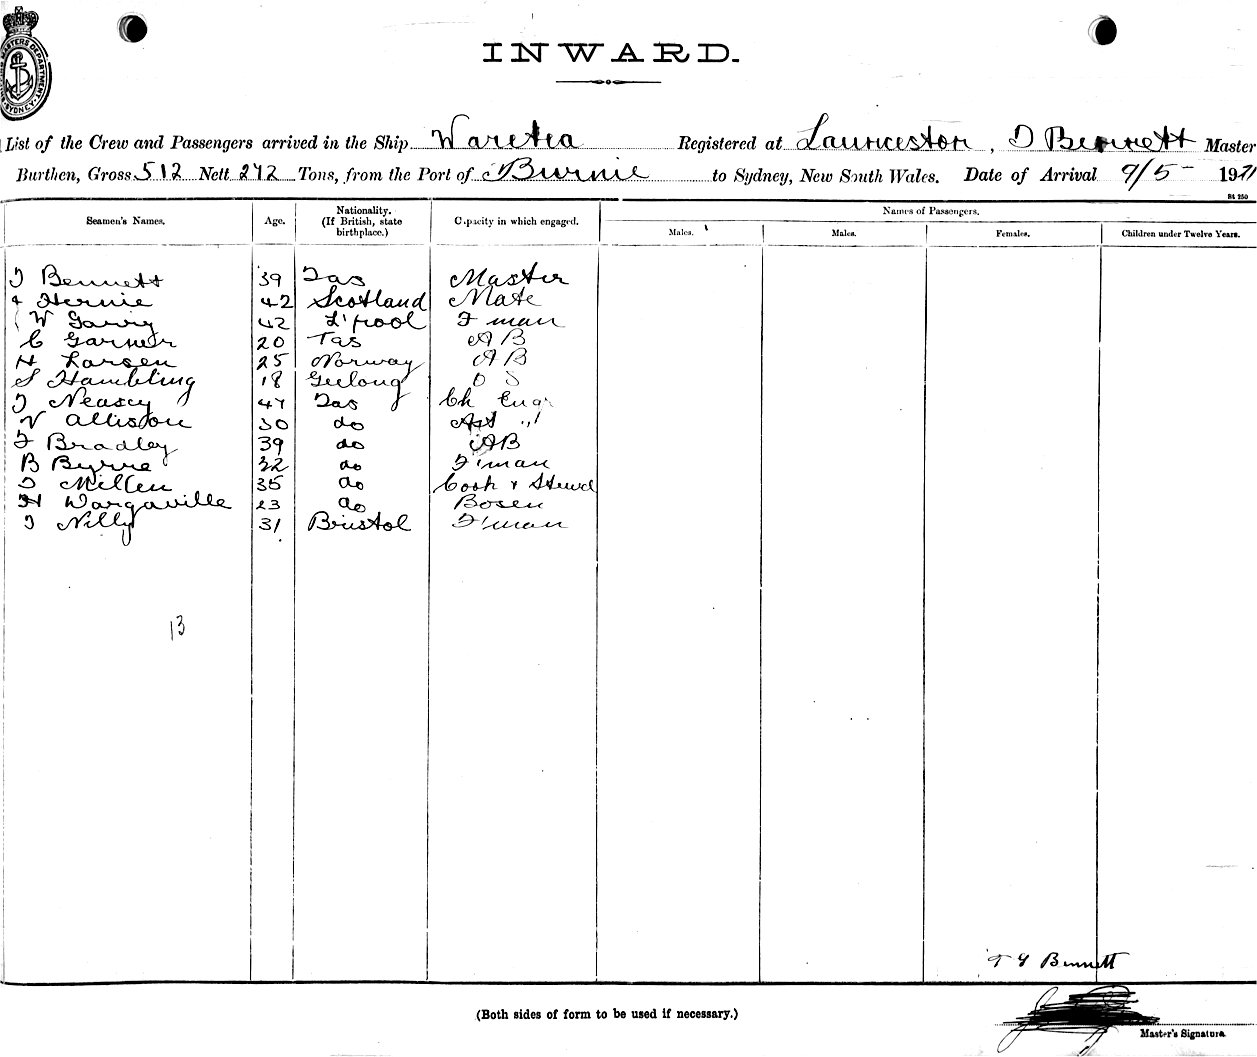 INWARD.
List of the Crew and Passengers arrived in the Ship Waretea Registered at Launceston, T Bennett Master
Burthen, Gross 512 Nett 242 Tons, from the Port of Burnie to Sydney, New South Wales. Date of Arrival 9/5 - 1921
Seamen's Names. Age. Nationality. (If British, state birthplace.) Capacity in which engaged. Names of Passengers.
Males. Males. Females. Children under Twelve Years.
T Bennett 39 Tas Master
42 Scotland Mate
W 42 L'pool F'man
C Garner 20 Tas AB
H Larsen 25 Norway AB
S Hambling 18 Geelong O S
T Neasey 47 Tas Ch Engr
V Allison 30 do Ast "
F Bradley 39 do AB
B Byrne 32 do F'man
T Millen 35 do Cook & Stewd
H Wargaville 23 do Bosen
T Nilly 31 Bristol F'man
13
T G Bennett
(Both sides of form to be used if necessary.)
Master's Signature.